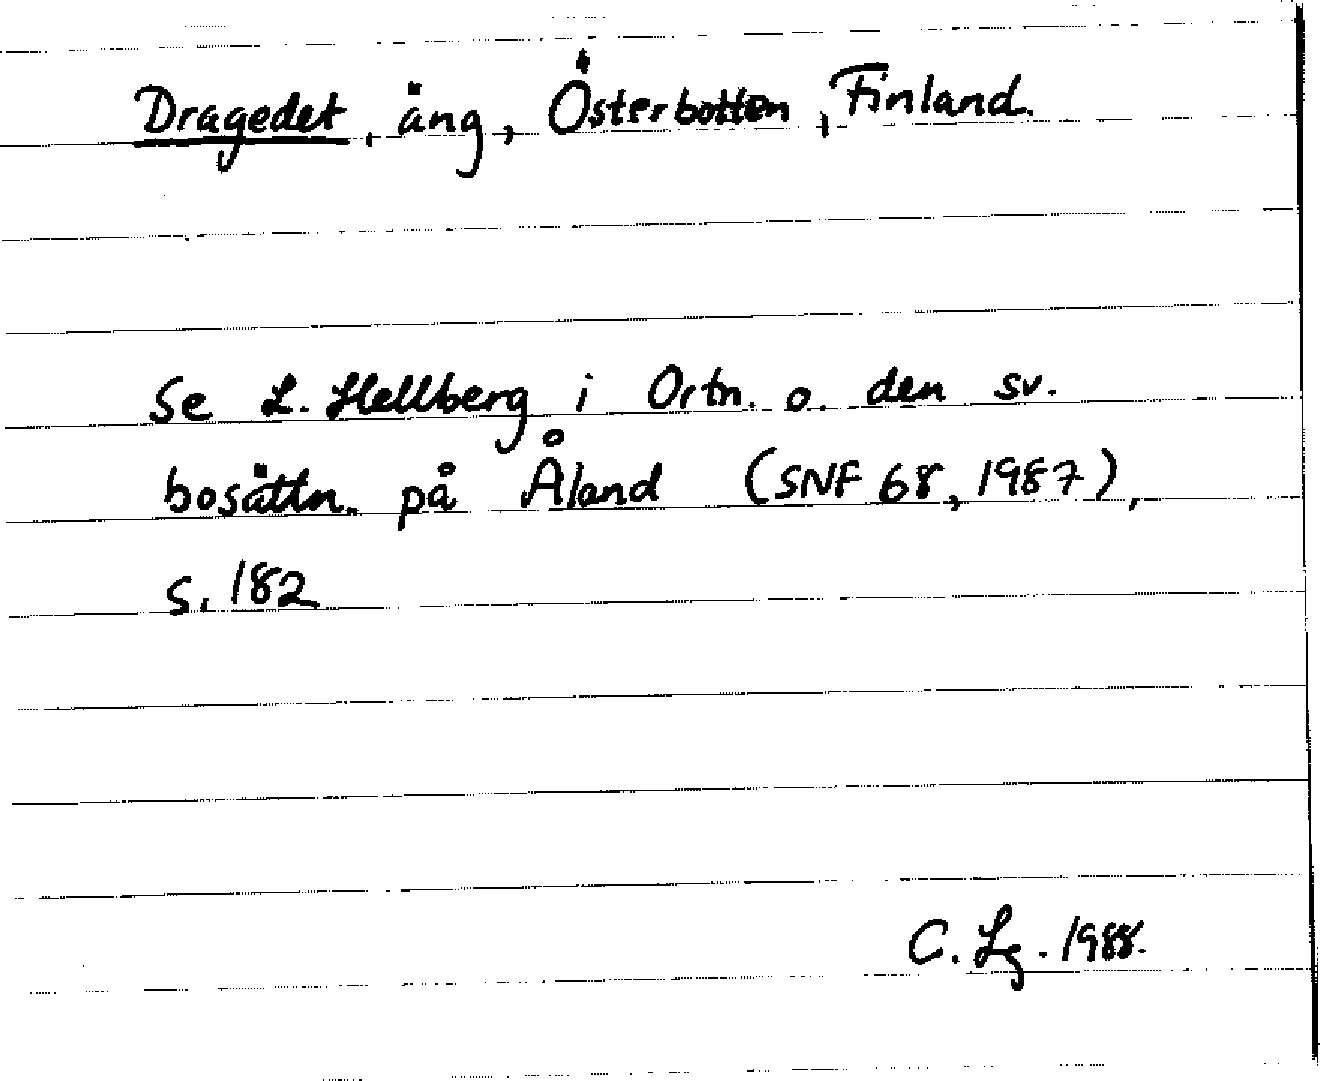 Dragedet, äng, Österbotten, Finland.
Se L. Hellberg i Ortn. o. den sv.
bosättn. på Åland (SNF 68, 1987),
s. 182
C. Lg. 1988.